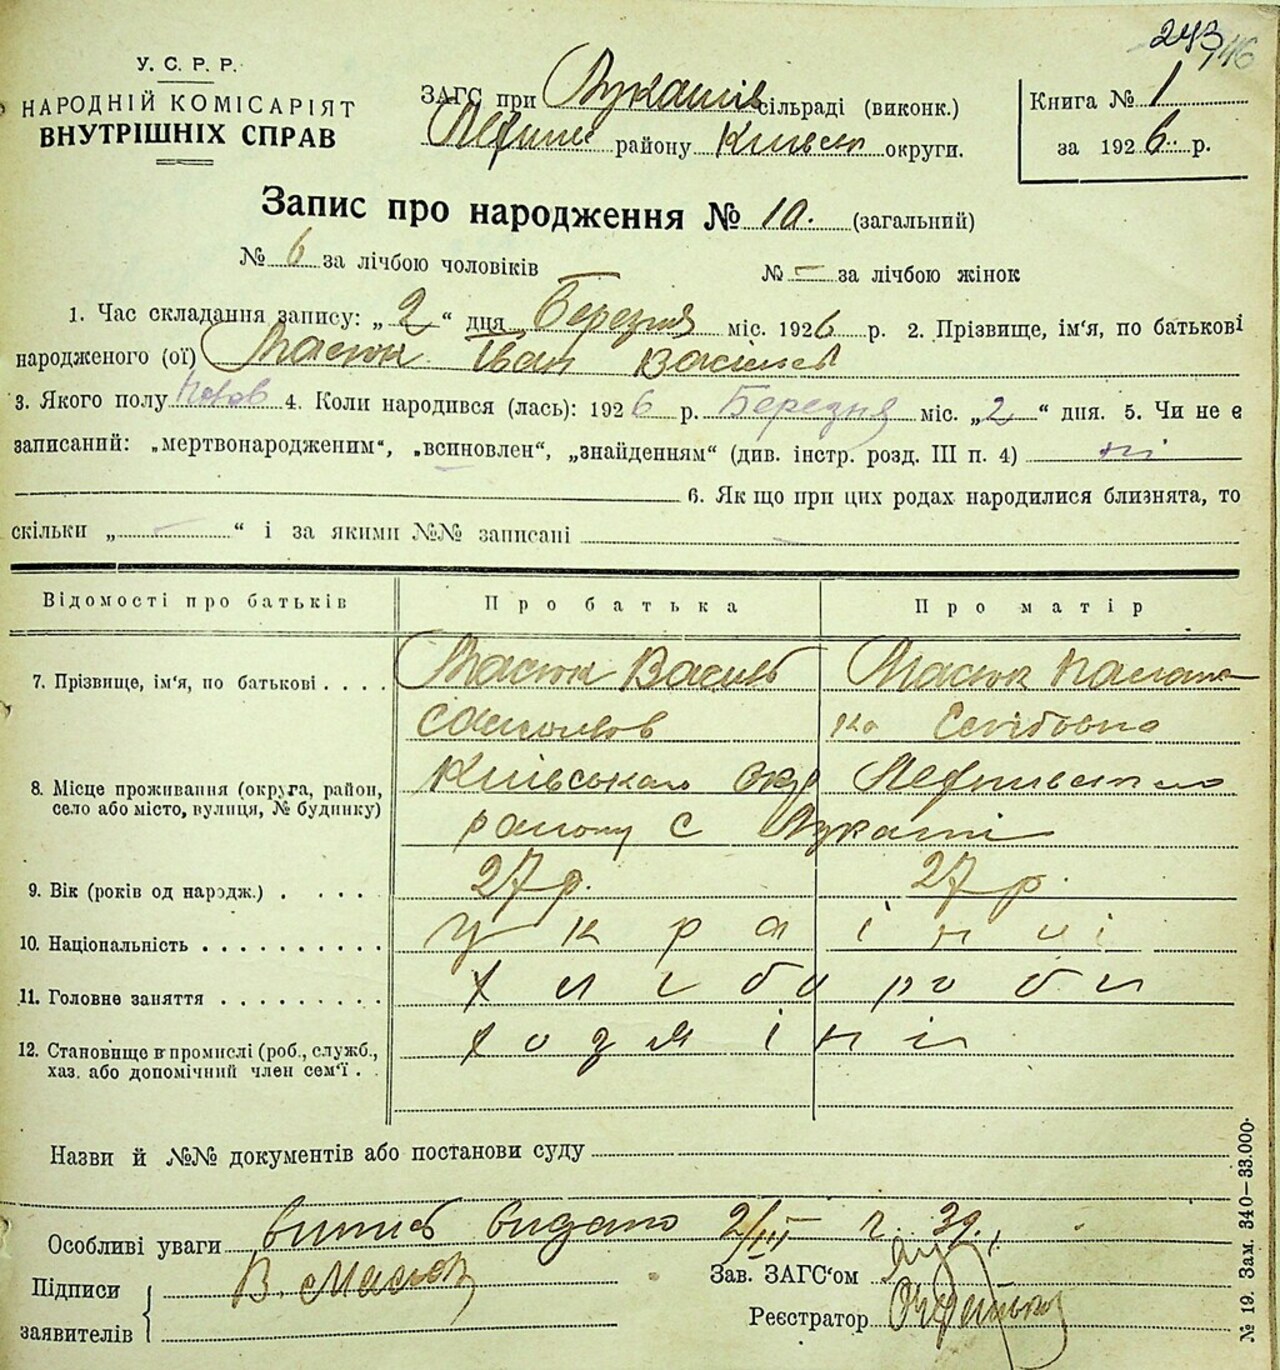 243
146
У. С. Р. Р.
НАРОДНІЙ КОМІСАРІЯТ
ВНУТРІШНІХ СПРАВ
ЗАГС при Лукашів сільраді (виконк.)
району Київськ округи.
Книга № 1
за 1926 р.
Запис про народження № 10. (загальний)
№ 6 за лічбою чоловіків
№ – за лічбою жінок
1. Час складання запису: „2“ дня Березня міс. 1926 р. 2. Прізвище, ім'я, по батькові
народженого (ої) Масюк Іван Васильев
3. Якого полу 4. Коли народився (лась): 1926 р. Березня міс. „2“ дня. 5. Чи не є
записаний: „мертвонародженим“, „всиновлен“, „знайденням“ (див. інстр. розд. III п. 4) ні
6. Як що при цих родах народилися близнята, то
скільки „ – “ і за якими №№ записані –
Відомості про батьків Про батька Про матір
7. Прізвище, ім'я, по батькові . . . . Масюк Василь Масюк
8. Місце проживання (округа, район, село або місто, вулиця, № будинку) Київського Окр
району с Лукаші
9. Вік (років од народж.) . . . . . 27 р. 27 р.
10. Національність . . . . . . . . . . українці
11. Головне заняття . . . . . . . . . хлібороби
12. Становище в промислі (роб., служб., хаз. або допомічний член сем'ї . . хозяіни
Назви й №№ документів або постанови суду
Особливі уваги випись видано 2/III г. 39.
Підписи
заявителів В. Масюк
Зав. ЗАГС'ом
Реєстратор
№ 19. Зам. 340—33.000.